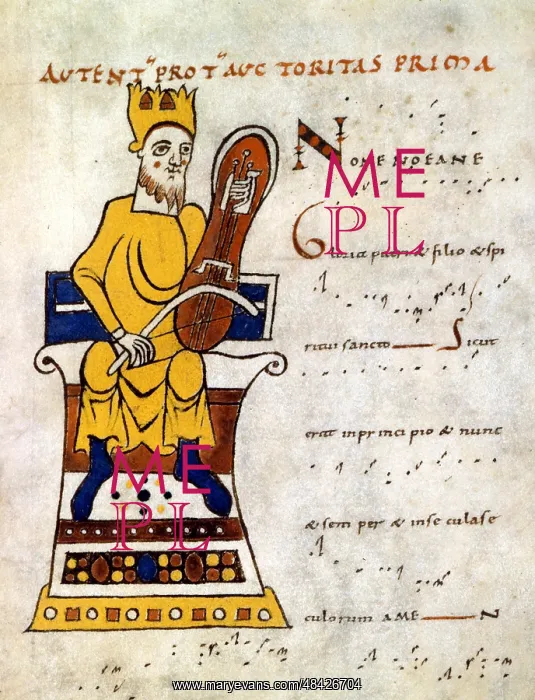 AUTENT' PROT' AUCTORITAS PRIMA
NONENOEANE
Gloria patri & filio & spi
ritui sancto Sicut
erat in principio & nunc
& semper & in se culase
culorum AMEN
ME
PL
ME
PL
www.maryevans.com/48426704